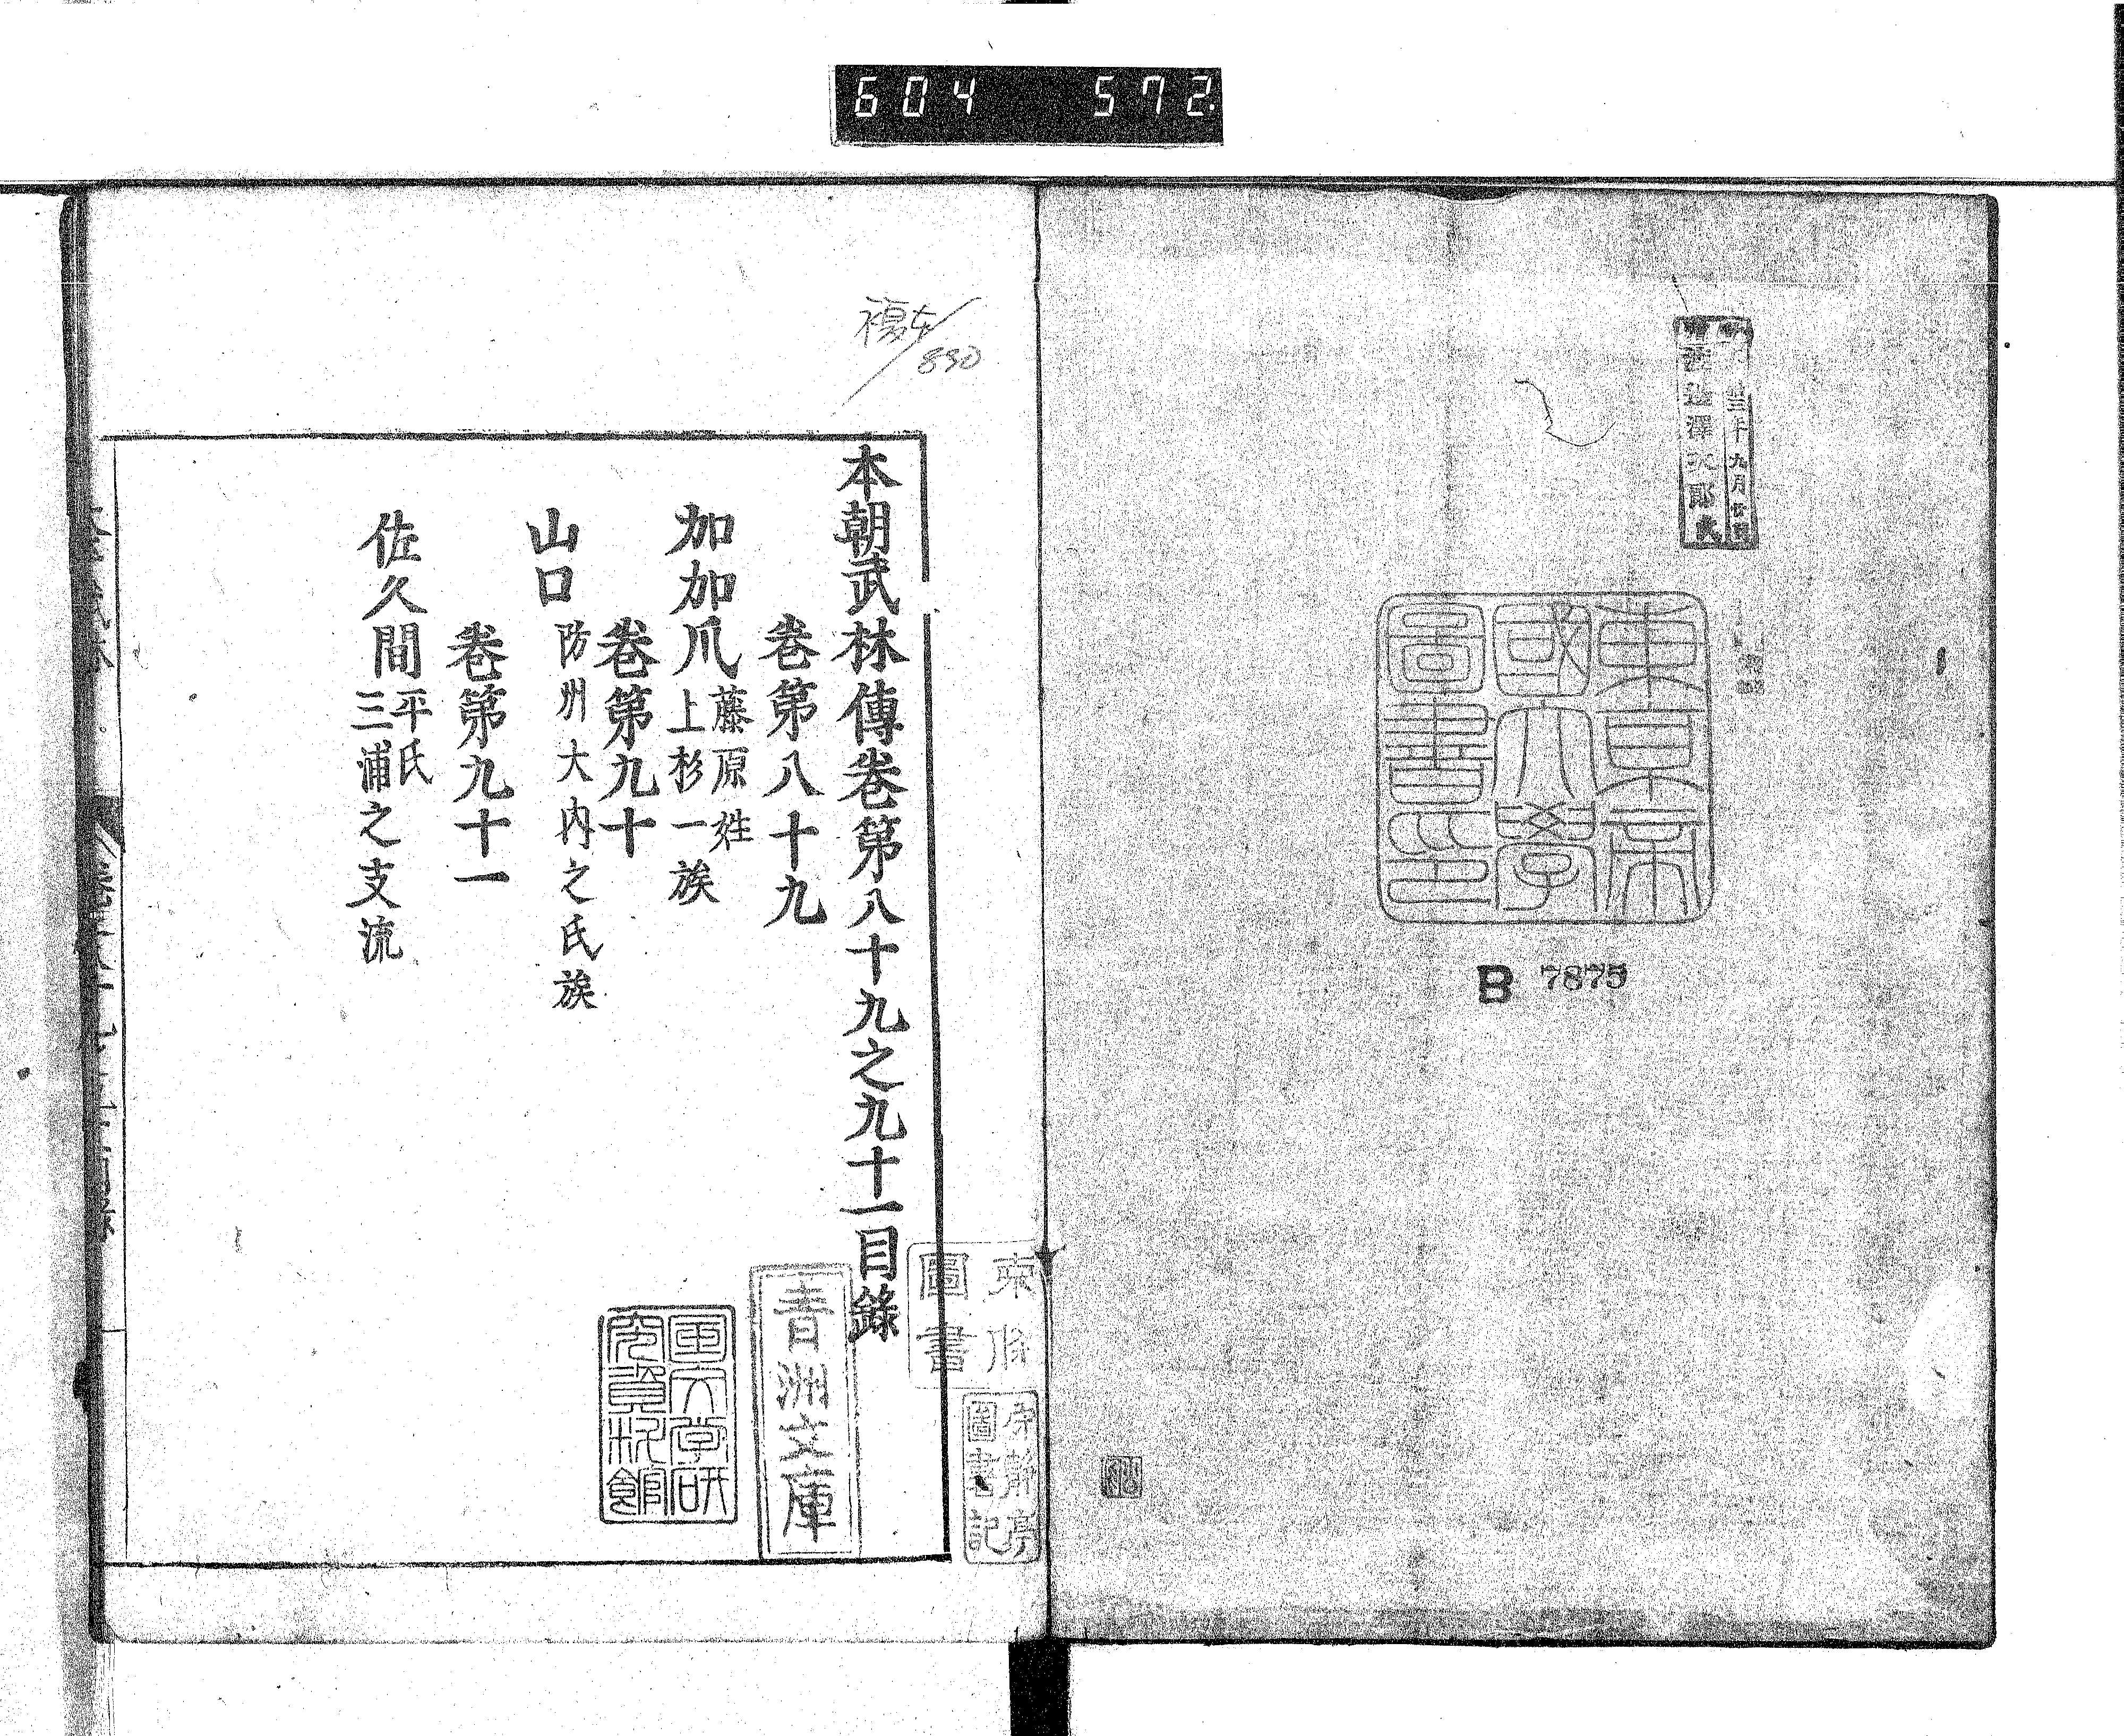 604 572.
B 7875
東京帝
國大學
圖書印
複本
830
本朝武林傳卷第八十九之九十一目錄
卷第八十九
加加爪 藤原姓
上杉一族
卷第九十
山口 防州大內之氏族
卷第九十一
佐久間 平氏
三浦之支流
圖書
青洲文庫
國文学研
究資料館
圖書記